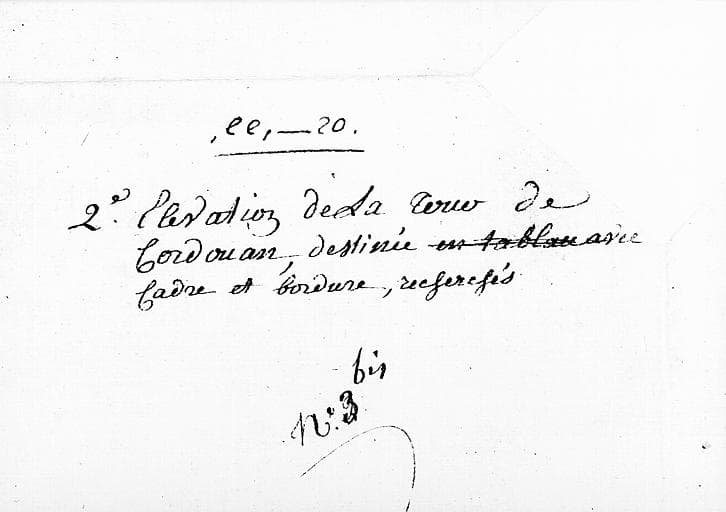 , ee, — 20.
2e. Elevation de La Tour de
Cordouan, destinée en tableau avec
Cadre et bordure, recherchés
bis
N.° 3